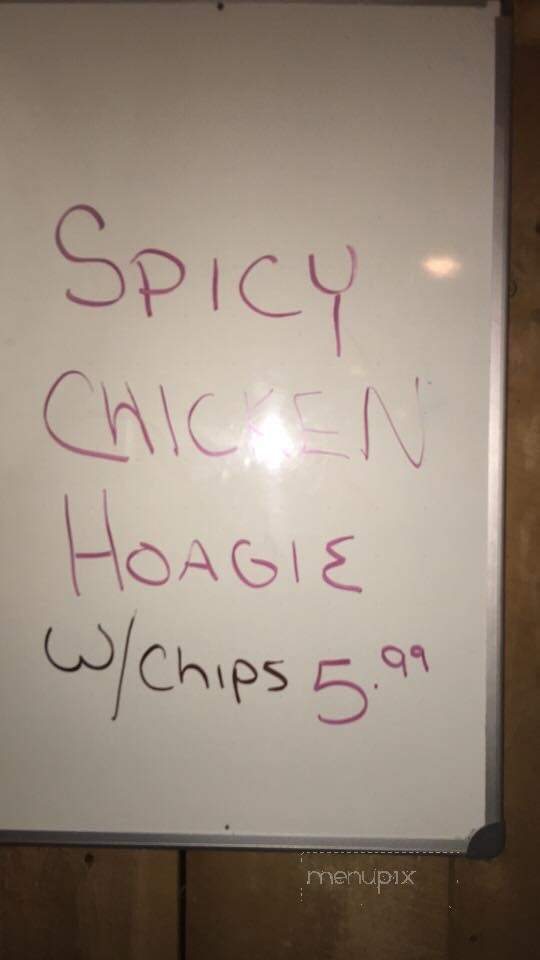 SPICY
CHICKEN
HOAGIE
W/Chips 5.99
menupix